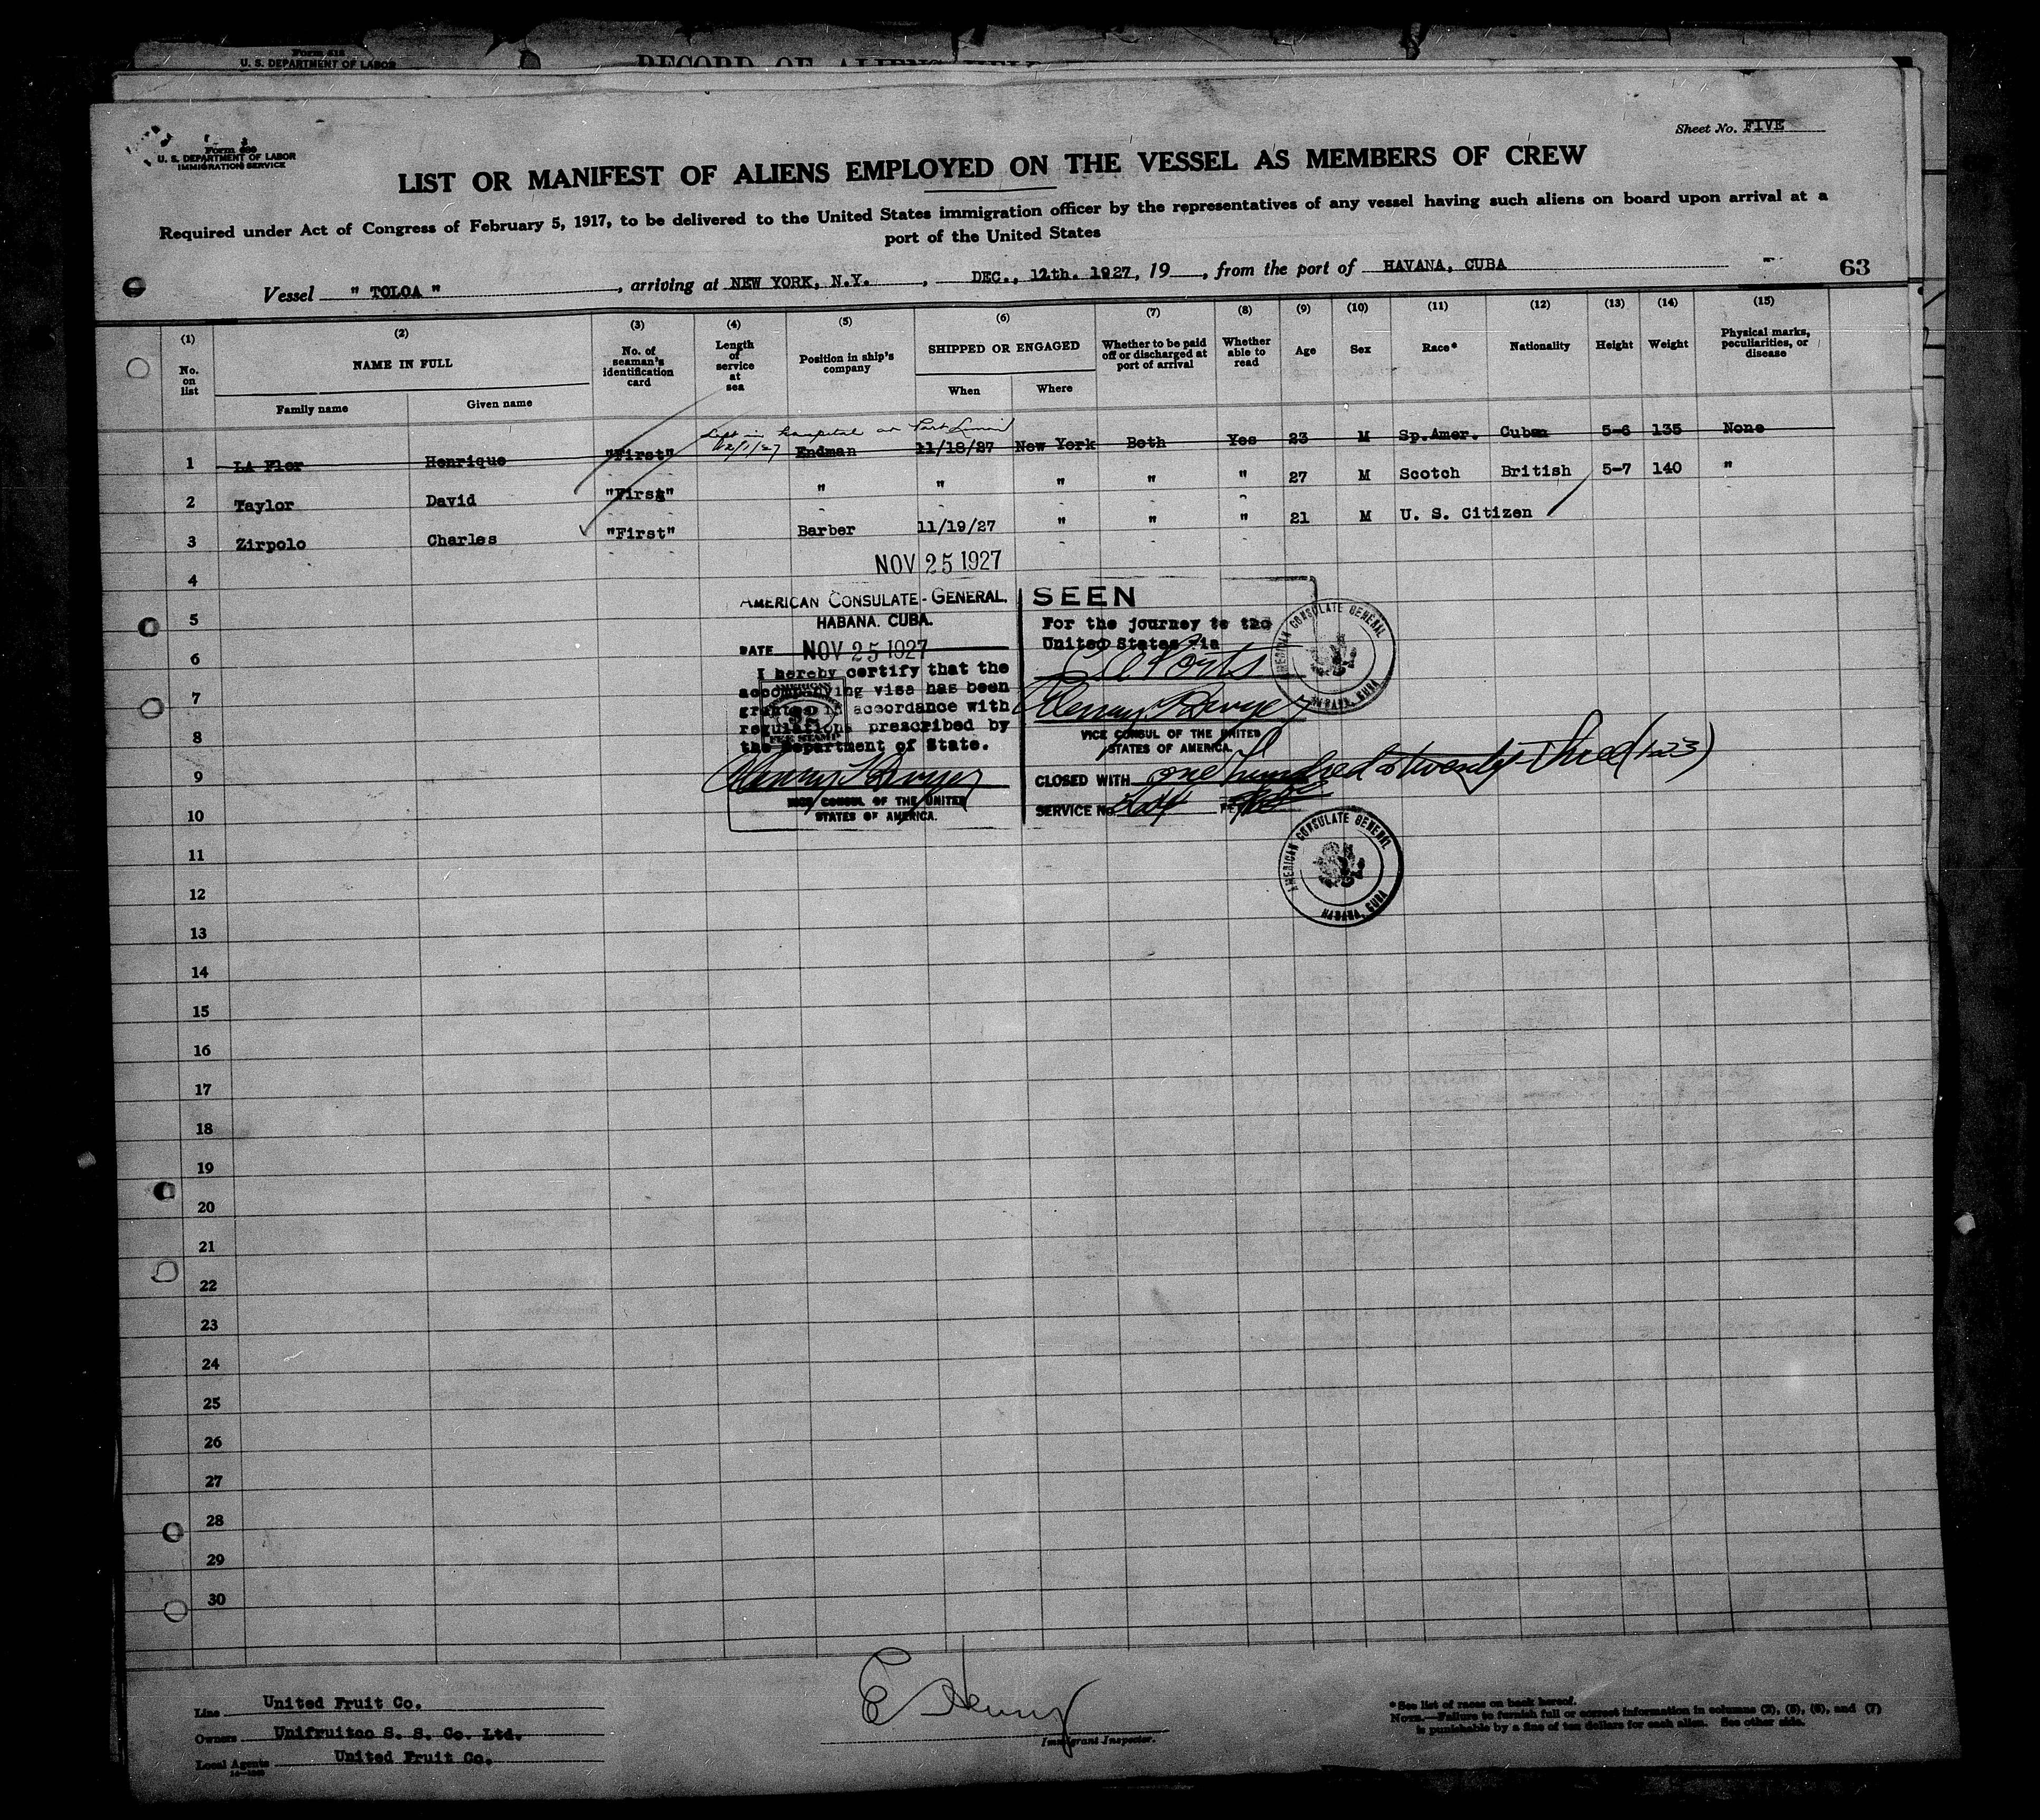 Form 618
U. S. DEPARTMENT OF LABOR
RECORD OF ALIENS HELD
Sheet No. FIVE
Form 680
U. S. DEPARTMENT OF LABOR
IMMIGRATION SERVICE
LIST OR MANIFEST OF ALIENS EMPLOYED ON THE VESSEL AS MEMBERS OF CREW
Required under Act of Congress of February 5, 1917, to be delivered to the United States immigration officer by the representatives of any vessel having such aliens on board upon arrival at a
port of the United States
Vessel " TOLOA ", arriving at NEW YORK, N.Y., DEC., 12th. 1927, 19 , from the port of HAVANA, CUBA
63
(1) (2) (3) (4) (5) (6) (7) (8) (9) (10) (11) (12) (13) (14) (15)
No. on list NAME IN FULL No. of seaman's identification card Length of service at sea Position in ship's company SHIPPED OR ENGAGED Whether to be paid off or discharged at port of arrival Whether able to read Age Sex Race* Nationality Height Weight Physical marks, peculiarities, or disease
Family name Given name When Where
Left in hospital at Port Limon
12/1/27
1 LA Flor Henrique "First" Endman 11/18/27 New York Both Yes 23 M Sp.Amer. Cuban 5-6 135 None
2 Taylor David "First" " " " " " 27 M Scotch British 5-7 140 "
3 Zirpolo Charles "First" Barber 11/19/27 " " " 21 M U. S. Citizen
NOV 25 1927
4
5
6
7
8
9
10
11
12
13
14
15
16
17
18
19
20
21
22
23
24
25
26
27
28
29
30
AMERICAN CONSULATE-GENERAL,
HABANA. CUBA.
DATE NOV 25 1927
I hereby certify that the
accompanying visa has been
granted in accordance with
regulations prescribed by
the Department of State.
VICE CONSUL OF THE UNITED
STATES OF AMERICA.
AMERICAN
FEE STAMP
SEEN
For the journey to the
United States via
VICE CONSUL OF THE UNITED
STATES OF AMERICA.
CLOSED WITH one hundred & twenty-three (123)
SERVICE No.
AMERICAN CONSULATE GENERAL
HABANA, CUBA
AMERICAN CONSULATE GENERAL
HABANA, CUBA
Line United Fruit Co.
Owners Unifruitco S. S. Co. Ltd.
Local Agents United Fruit Co.
Immigrant Inspector.
*See list of races on back hereof.
NOTE.—Failure to furnish full or correct information in columns (2), (5), (6), and (7)
is punishable by a fine of ten dollars for each alien. See other side.